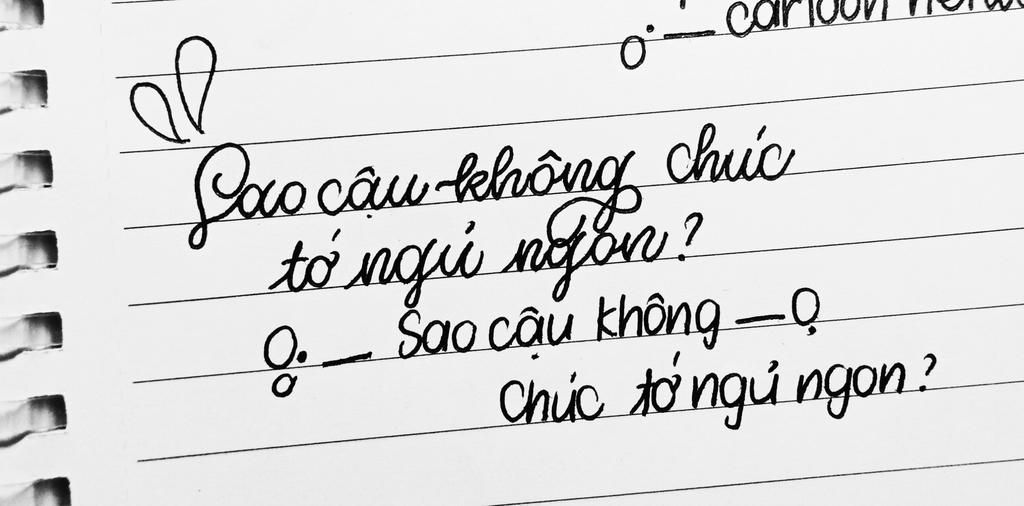 cartoon
Sao cậu không chúc
tớ ngủ ngon?
Sao cậu không
chúc tớ ngủ ngon?